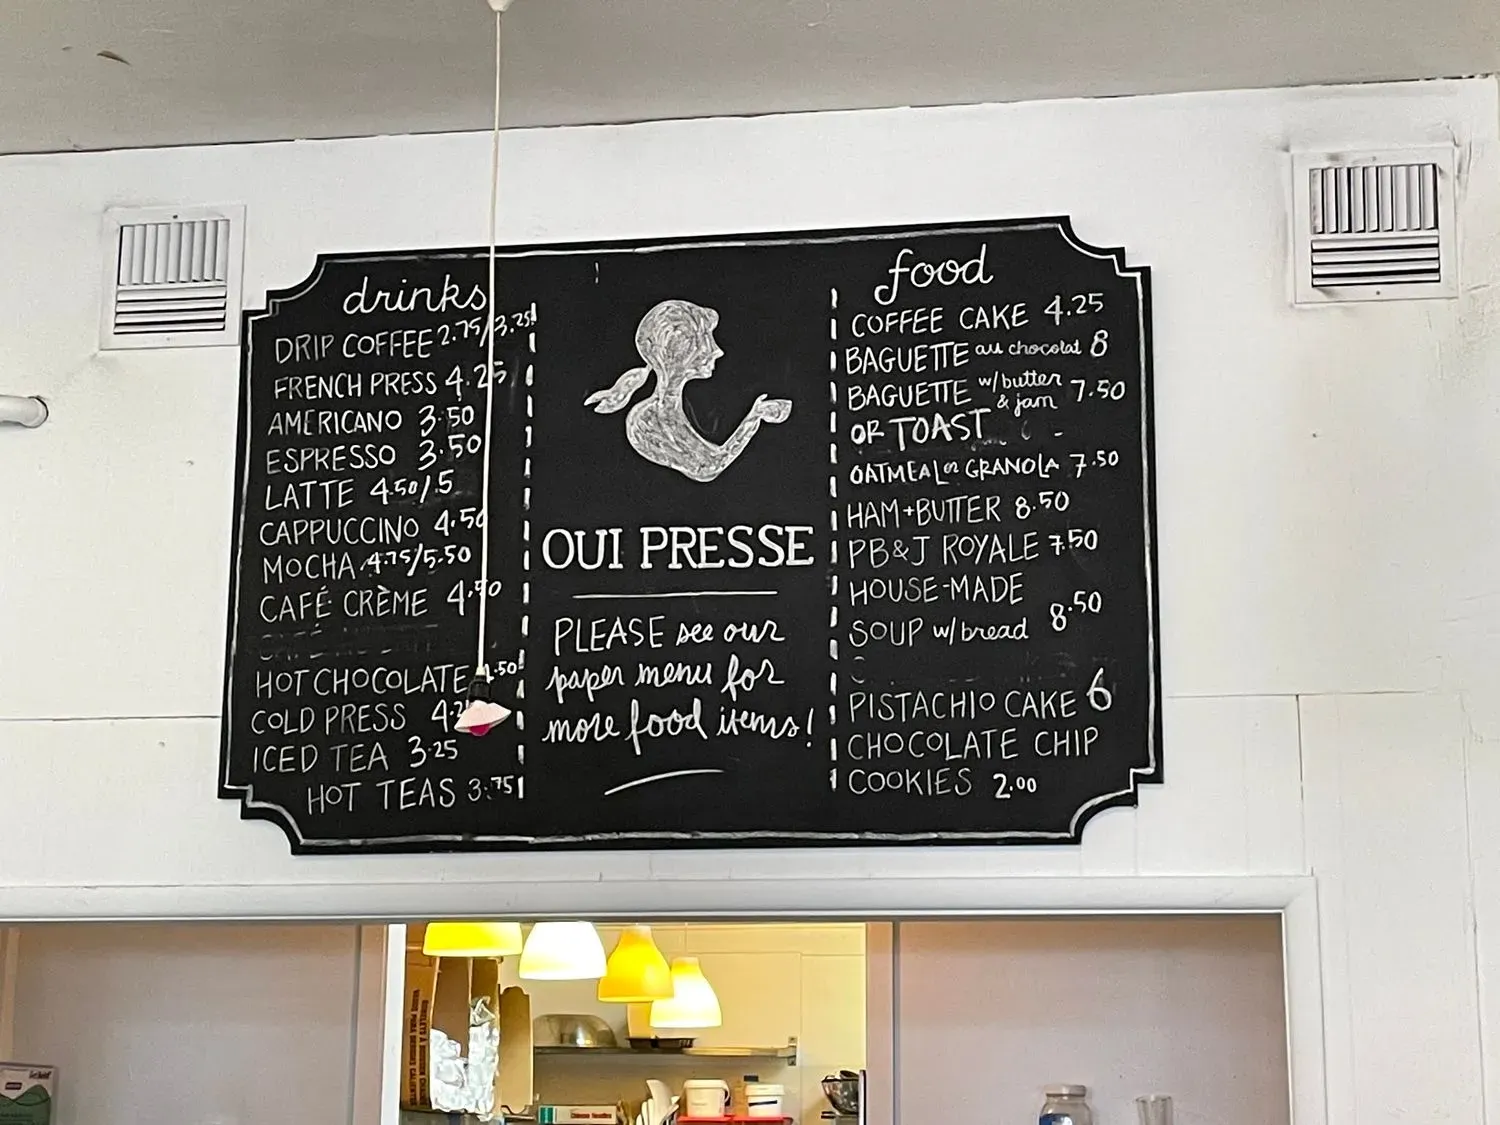 drinks
DRIP COFFEE 2.75/3.25
FRENCH PRESS 4.25
AMERICANO 3.50
ESPRESSO 3.50
LATTE 4.50/.5
CAPPUCCINO 4.50
MOCHA 4.75/5.50
CAFÉ CRÈME 4.50
HOT CHOCOLATE .50
COLD PRESS
ICED TEA 3.25
HOT TEAS 3.75
OUI PRESSE
PLEASE see our
paper menu for
more food items!
food
COFFEE CAKE 4.25
BAGUETTE au chocolat 8
BAGUETTE w/butter & jam 7.50
OR TOAST
OATMEAL or GRANOLA 7.50
HAM+BUTTER 8.50
PB&J ROYALE 7.50
HOUSE-MADE
SOUP w/bread 8.50
PISTACHIO CAKE 6
CHOCOLATE CHIP
COOKIES 2.00